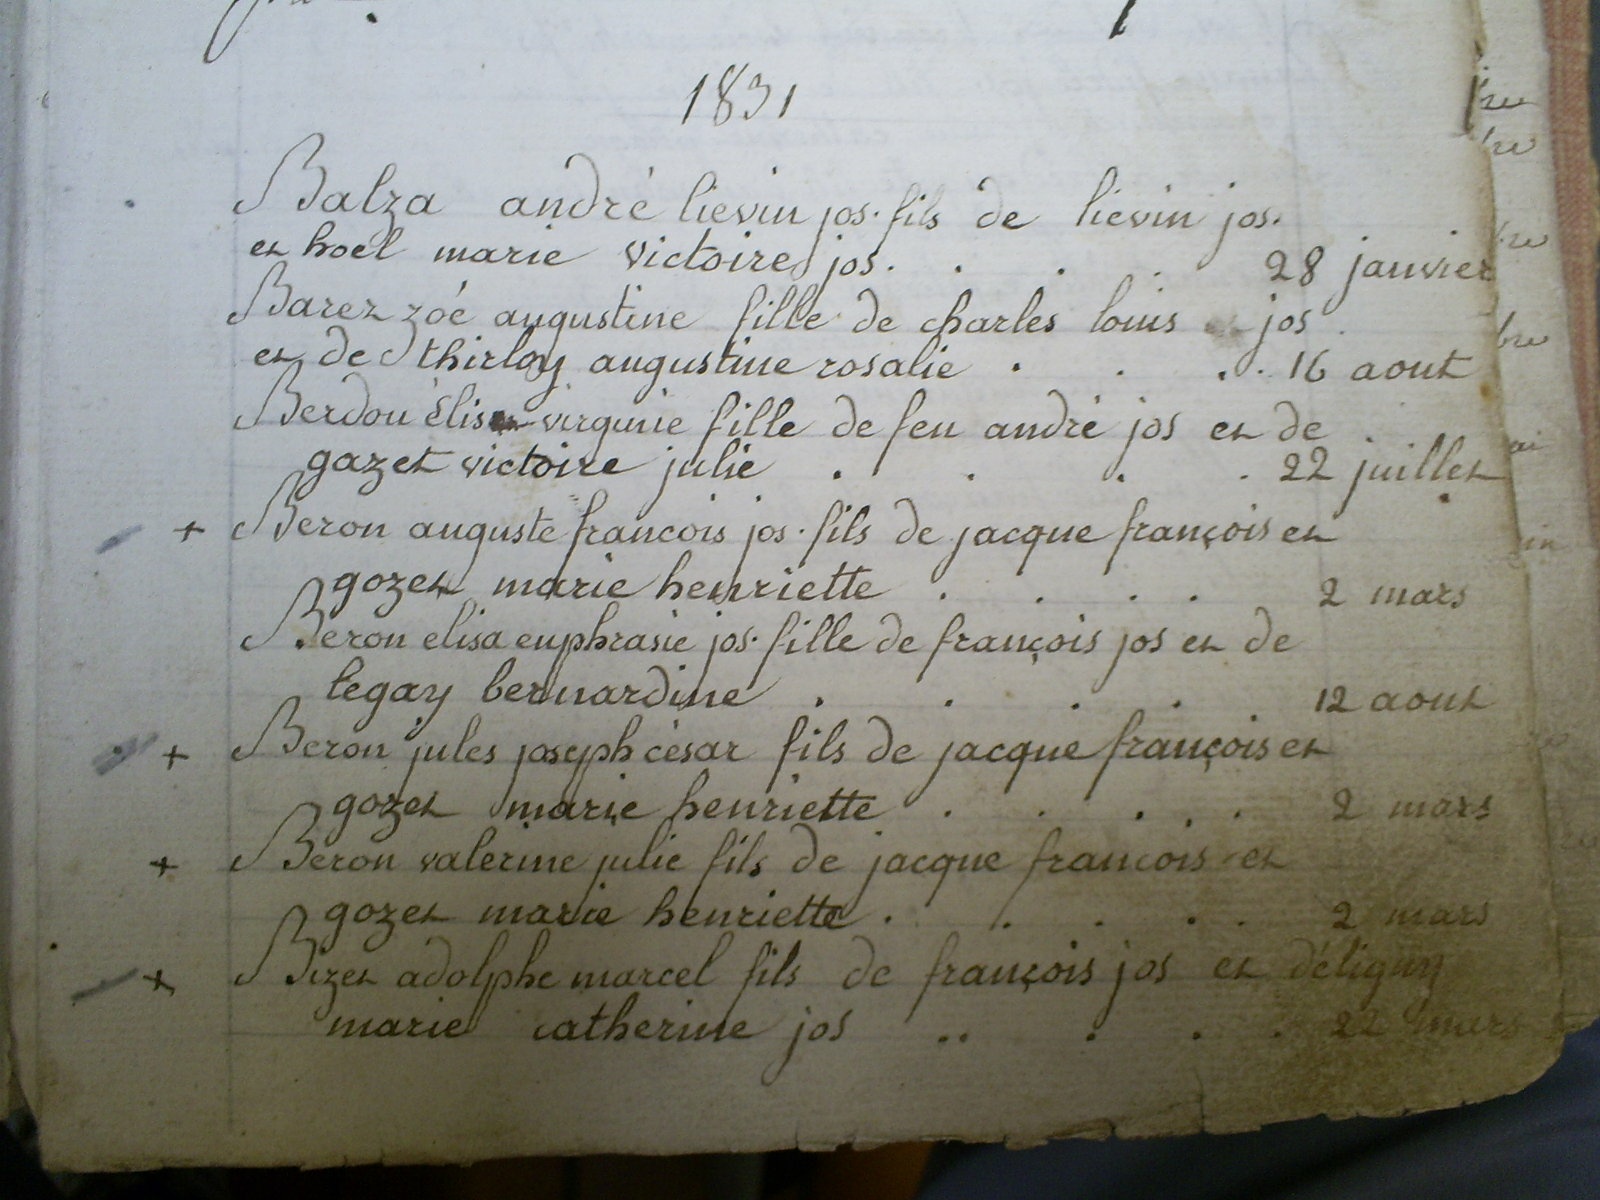 1831
Balza andré lievin jos. fils de lievin jos.
et hoel marie victoire jos. . . . 28 janvier
Barez zoé augustine fille de charles louis jos .
et de thirloy augustine rosalie . . . . 16 aout
Berdou élisa virginie fille de feu andré jos et de .
gazet victoire julie . . . . 22 juillet
+ Beron auguste francois jos. fils de jacque françois et
gozet marie henriette . . . . 2 mars
Beron élisa euphrasie jos. fille de françois jos et de
legay bernardine . . . . 12 aout
+ Beron jules joseph césar fils de jacque françois et
gozet marie henriette . . . . . 2 mars
+ Beron valerine julie fils de jacque francois et
gozet marie henriette . . . . . 2 mars
+ Bizet adolphe marcel fils de françois jos et déligny
marie catherine jos .. . . . 22 mars